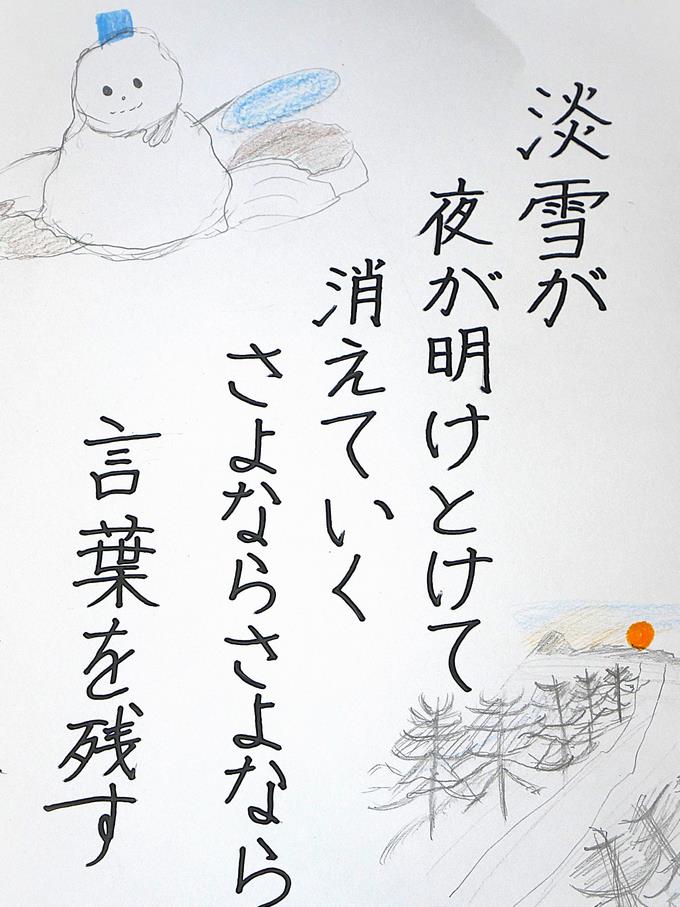 淡雪が
夜が明けとけて
消えていく
さよならさよなら
言葉を残す